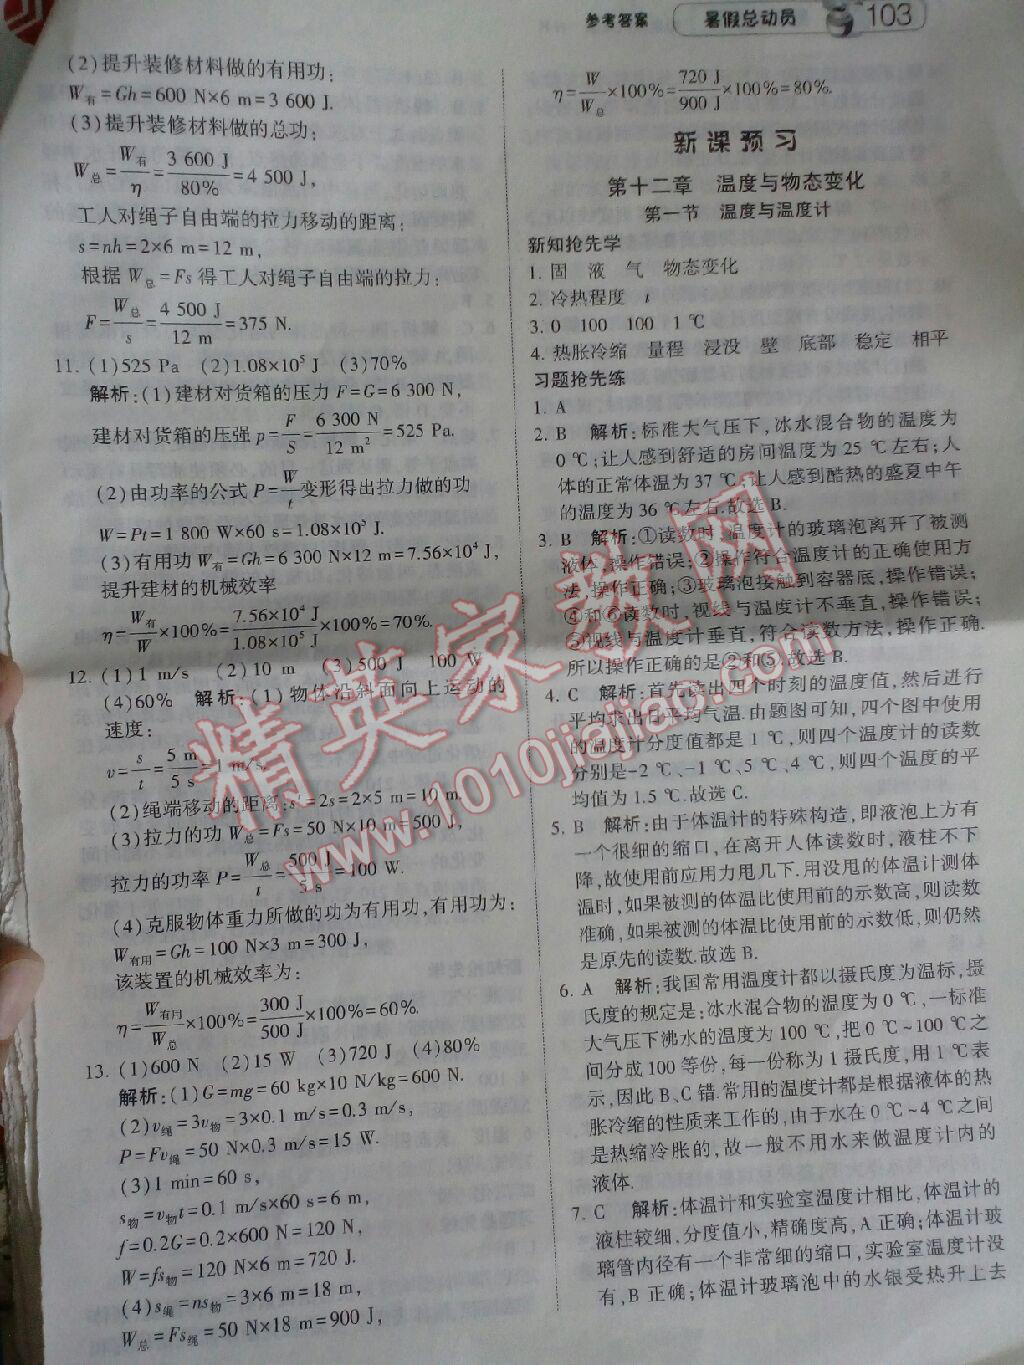 参考答案 暑假总动员 103
(2)提升装修材料做的有用功:
W有=Gh=600 N×6 m=3 600 J.
(3)提升装修材料做的总功:
W总=W有/η=3 600 J/80%=4 500 J,
工人对绳子自由端的拉力移动的距离:
s=nh=2×6 m=12 m,
根据 W总=Fs得工人对绳子自由端的拉力:
F=W总/s=4 500 J/12 m=375 N.
11. (1)525 Pa (2)1.08×10⁵ J (3)70%
解析:(1)建材对货箱的压力 F=G=6 300 N,
建材对货箱的压强 p=F/S=6 300 N/12 m²=525 Pa.
(2)由功率的公式 P=W/t变形得出拉力做的功
W=Pt=1 800 W×60 s=1.08×10⁵ J.
(3)有用功 W有=Gh=6 300 N×12 m=7.56×10⁴ J,
提升建材的机械效率
η=W有/W×100%=7.56×10⁴ J/1.08×10⁵ J×100%=70%.
12. (1)1 m/s (2)10 m (3)500 J 100 W
(4)60% 解析:(1)物体沿斜面向上运动的
速度:
v=s/t=5 m/5 s=1 m/s.
(2)绳端移动的距离:s'=2s=2×5 m=10 m.
(3)拉力的功 W总=Fs=50 N×10 m=500 J,
拉力的功率 P=W总/t=500 J/5 s=100 W.
(4)克服物体重力所做的功为有用功,有用功为:
W有用=Gh=100 N×3 m=300 J,
该装置的机械效率为:
η=W有用/W总×100%=300 J/500 J×100%=60%.
13. (1)600 N (2)15 W (3)720 J (4)80%
解析:(1)G=mg=60 kg×10 N/kg=600 N.
(2)v绳=3v物=3×0.1 m/s=0.3 m/s,
P=Fv绳=50 N×0.3 m/s=15 W.
(3)1 min=60 s,
s物=v物t=0.1 m/s×60 s=6 m,
f=0.2G=0.2×600 N=120 N,
W=fs物=120 N×6 m=720 J.
(4)s绳=ns物=3×6 m=18 m,
W总=Fs绳=50 N×18 m=900 J,
η=W/W总×100%=720 J/900 J×100%=80%.
新课预习
第十二章 温度与物态变化
第一节 温度与温度计
新知抢先学
1. 固 液 气 物态变化
2. 冷热程度 t
3. 0 100 100 1 ℃
4. 热胀冷缩 量程 浸没 壁 底部 稳定 相平
习题抢先练
1. A
2. B 解析:标准大气压下,冰水混合物的温度为
0 ℃;让人感到舒适的房间温度为 25 ℃左右;人
体的正常体温为 37 ℃;让人感到酷热的盛夏中午
的温度为 36 ℃左右.故选 B.
3. B 解析:①读数时,温度计的玻璃泡离开了被测
液体,操作错误;②操作符合温度计的正确使用方
法,操作正确;③玻璃泡接触到容器底,操作错误;
④和⑥读数时,视线与温度计不垂直,操作错误;
⑤视线与温度计垂直,符合读数方法,操作正确.
所以操作正确的是②和⑤.故选 B.
4. C 解析:首先读出四个时刻的温度值,然后进行
平均求出日平均气温.由题图可知,四个图中使用
的温度计分度值都是 1 ℃,则四个温度计的读数
分别是-2 ℃、-1 ℃、5 ℃、4 ℃,则四个温度的平
均值为 1.5 ℃.故选 C.
5. B 解析:由于体温计的特殊构造,即液泡上方有
一个很细的缩口,在离开人体读数时,液柱不下
降,故使用前应用力甩几下.用没甩的体温计测体
温时,如果被测的体温比使用前的示数高,则读数
准确,如果被测的体温比使用前的示数低,则仍然
是原先的读数.故选 B.
6. A 解析:我国常用温度计都以摄氏度为温标,摄
氏度的规定是:冰水混合物的温度为 0 ℃,一标准
大气压下沸水的温度为 100 ℃,把 0 ℃~100 ℃之
间分成 100 等份,每一份称为 1 摄氏度,用 1 ℃表
示,因此 B、C 错.常用的温度计都是根据液体的热
胀冷缩的性质来工作的,由于水在 0 ℃~4 ℃之间
是热缩冷胀的,故一般不用水来做温度计内的
液体.
7. C 解析:体温计和实验室温度计相比,体温计的
液柱较细,分度值小,精确度高,A 正确;体温计玻
璃管内径有一个非常细的缩口,实验室温度计没
有,B 正确;体温计玻璃泡中的水银受热升上去
精英家教网
www.1010jiajiao.com